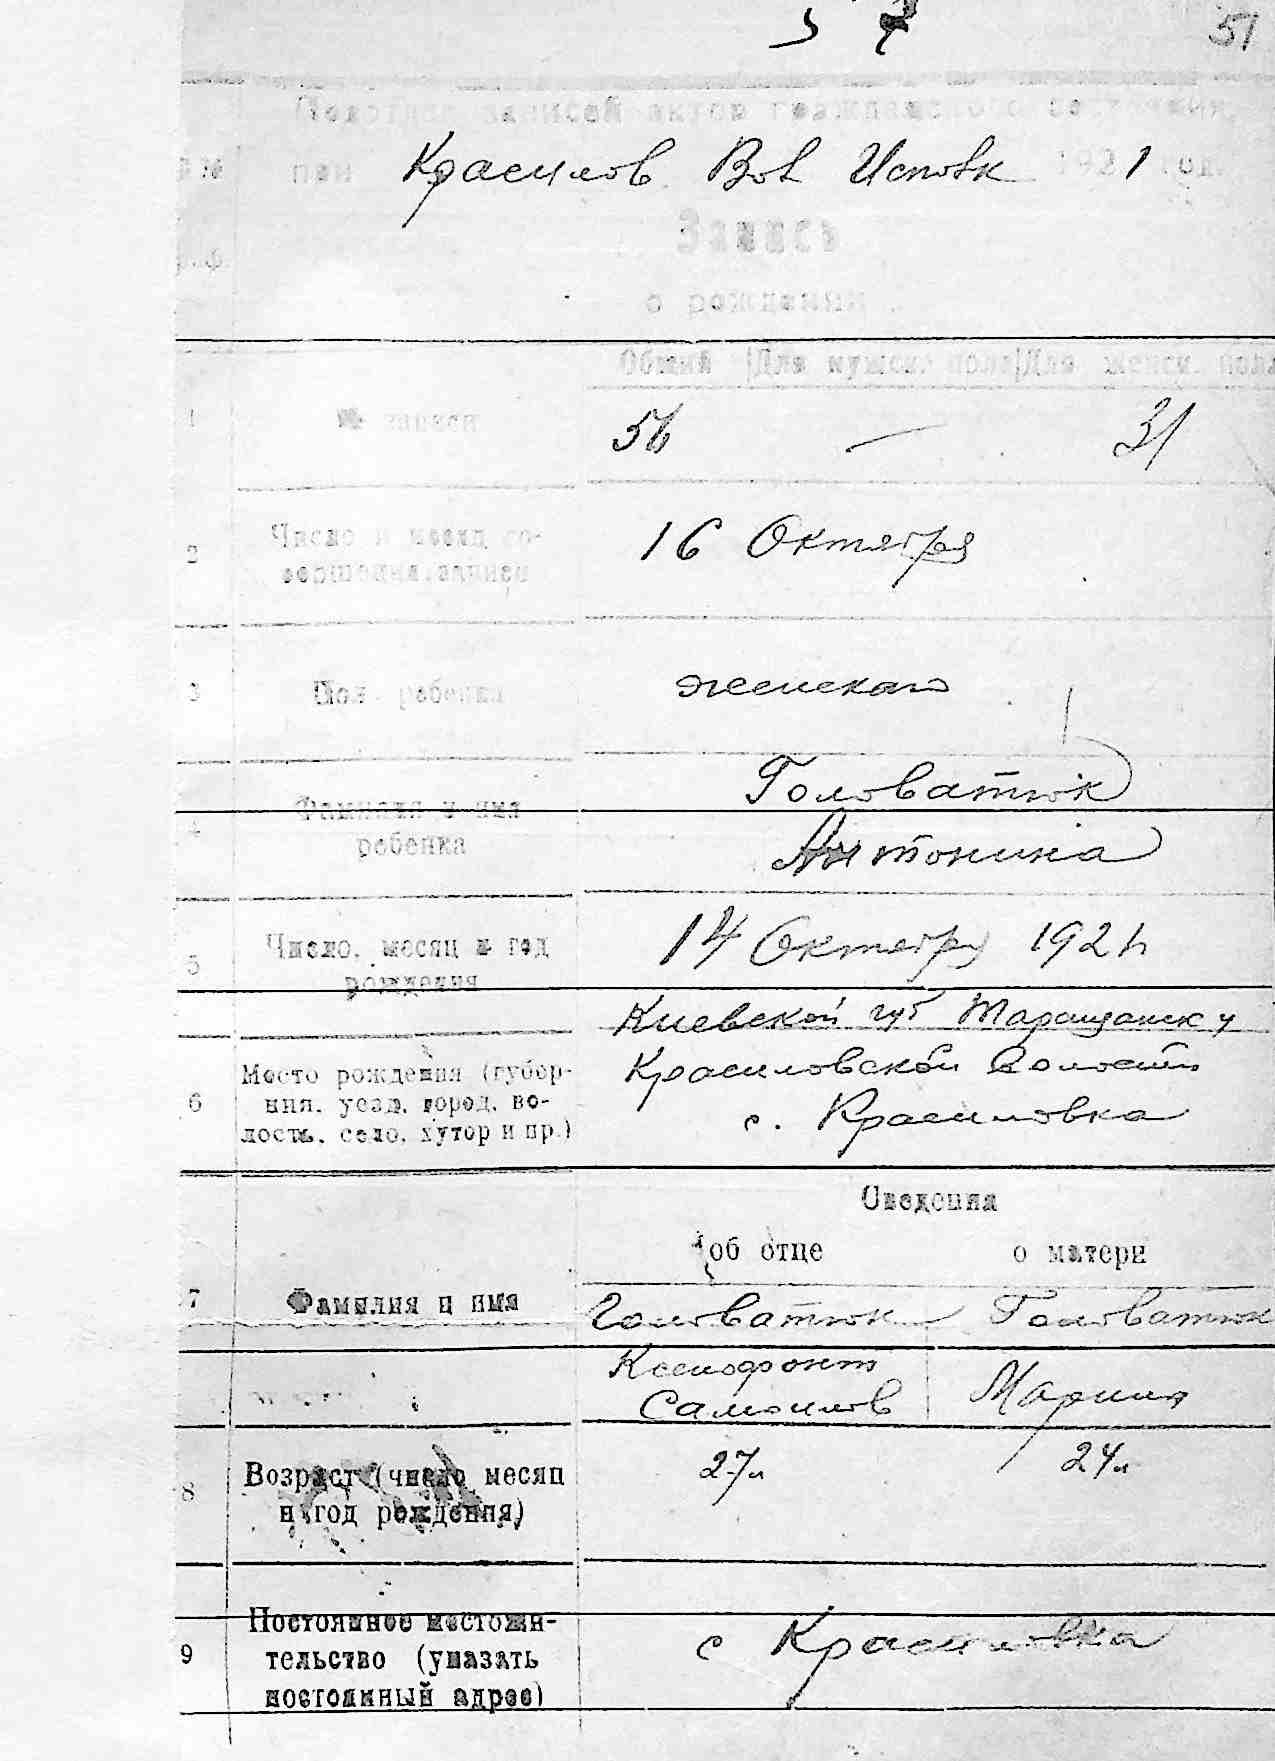 51
записей актов гражданского состояния,
при Красилов Вол Исповк 1921 год.
Запись
о рождении
Общий Для мужск. пола Для женск. пола
1 № записи 56 — 31
2 Число и месяц со-
вершения записи 16 Октября
3 Пол ребенка женская
4 Фамилия и имя Головатюк
ребенка Антонина
5 Число, месяц и год 14 Октября 1921
рождения
Киевской губ Таращанск у
6 Место рождения (губер- Красиловской Волости
ния, уезд, город, во-
лость, село, хутор и пр.) с. Красиловка
Сведения
об отце о матери
7 Фамилия и имя Головатюк Головатюк
Ксенофонт
Самойлов Мария
8 Возраст (число месяц 27л 24л
и год рождения)
9 Постоянное местожи-
тельство (указать с Красиловка
постоянный адрес)